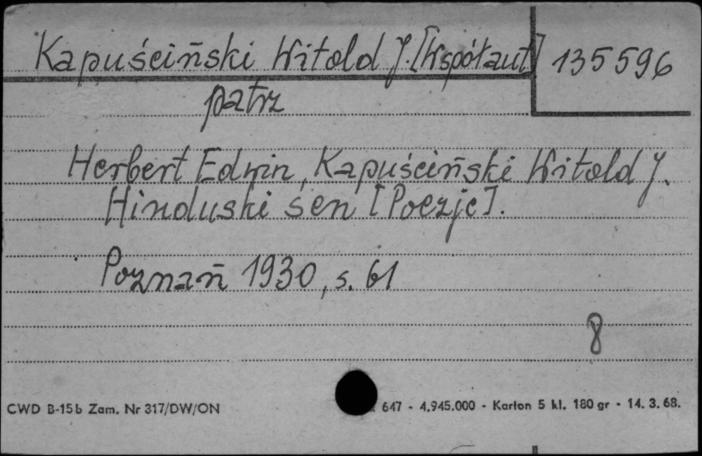 Kapuściński Witold J. [Współaut] 135596
patrz
Herbert Edwin, Kapuściński Witold J.
Hinduski sen [Poezje].
Poznań 1930, s. 61
8
CWD B-15b Zam. Nr 317/DW/ON 647 - 4.945.000 - Karton 5 kl. 180 gr - 14. 3. 68.